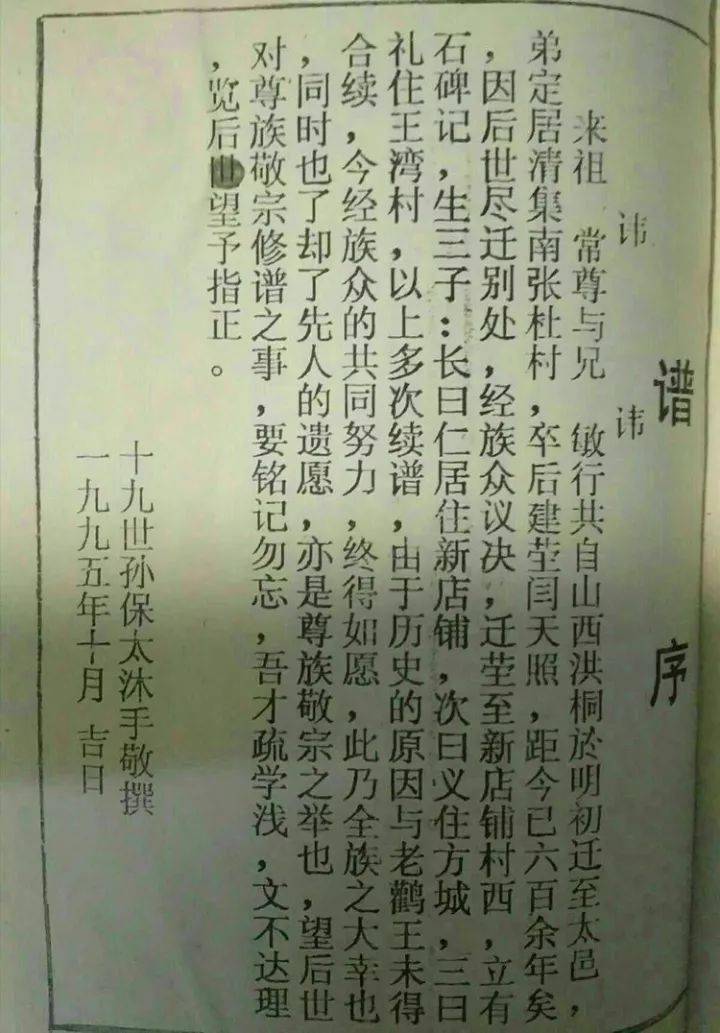 谱序
来祖讳常尊与兄讳敏行共自山西洪桐於明初迁至太邑，
弟定居清集南张杜村，卒后建茔闫天照，距今已六百余年矣
，因后世尽迁别处，经族众议决，迁茔至新店铺村西，立有
石碑记，生三子：长曰仁居住新店铺，次曰义住方城，三曰
礼住王湾村，以上多次续谱，由于历史的原因与老鹳王未得
合续，今经族众的共同努力，终得如愿，此乃全族之大幸也
，同时也了却了先人的遗愿，亦是尊族敬宗之举也，望后世
对尊族敬宗修谱之事，要铭记勿忘，吾才疏学浅，文不达理
，览后望予指正。
十九世孙保太沐手敬撰
一九九五年十月 吉日